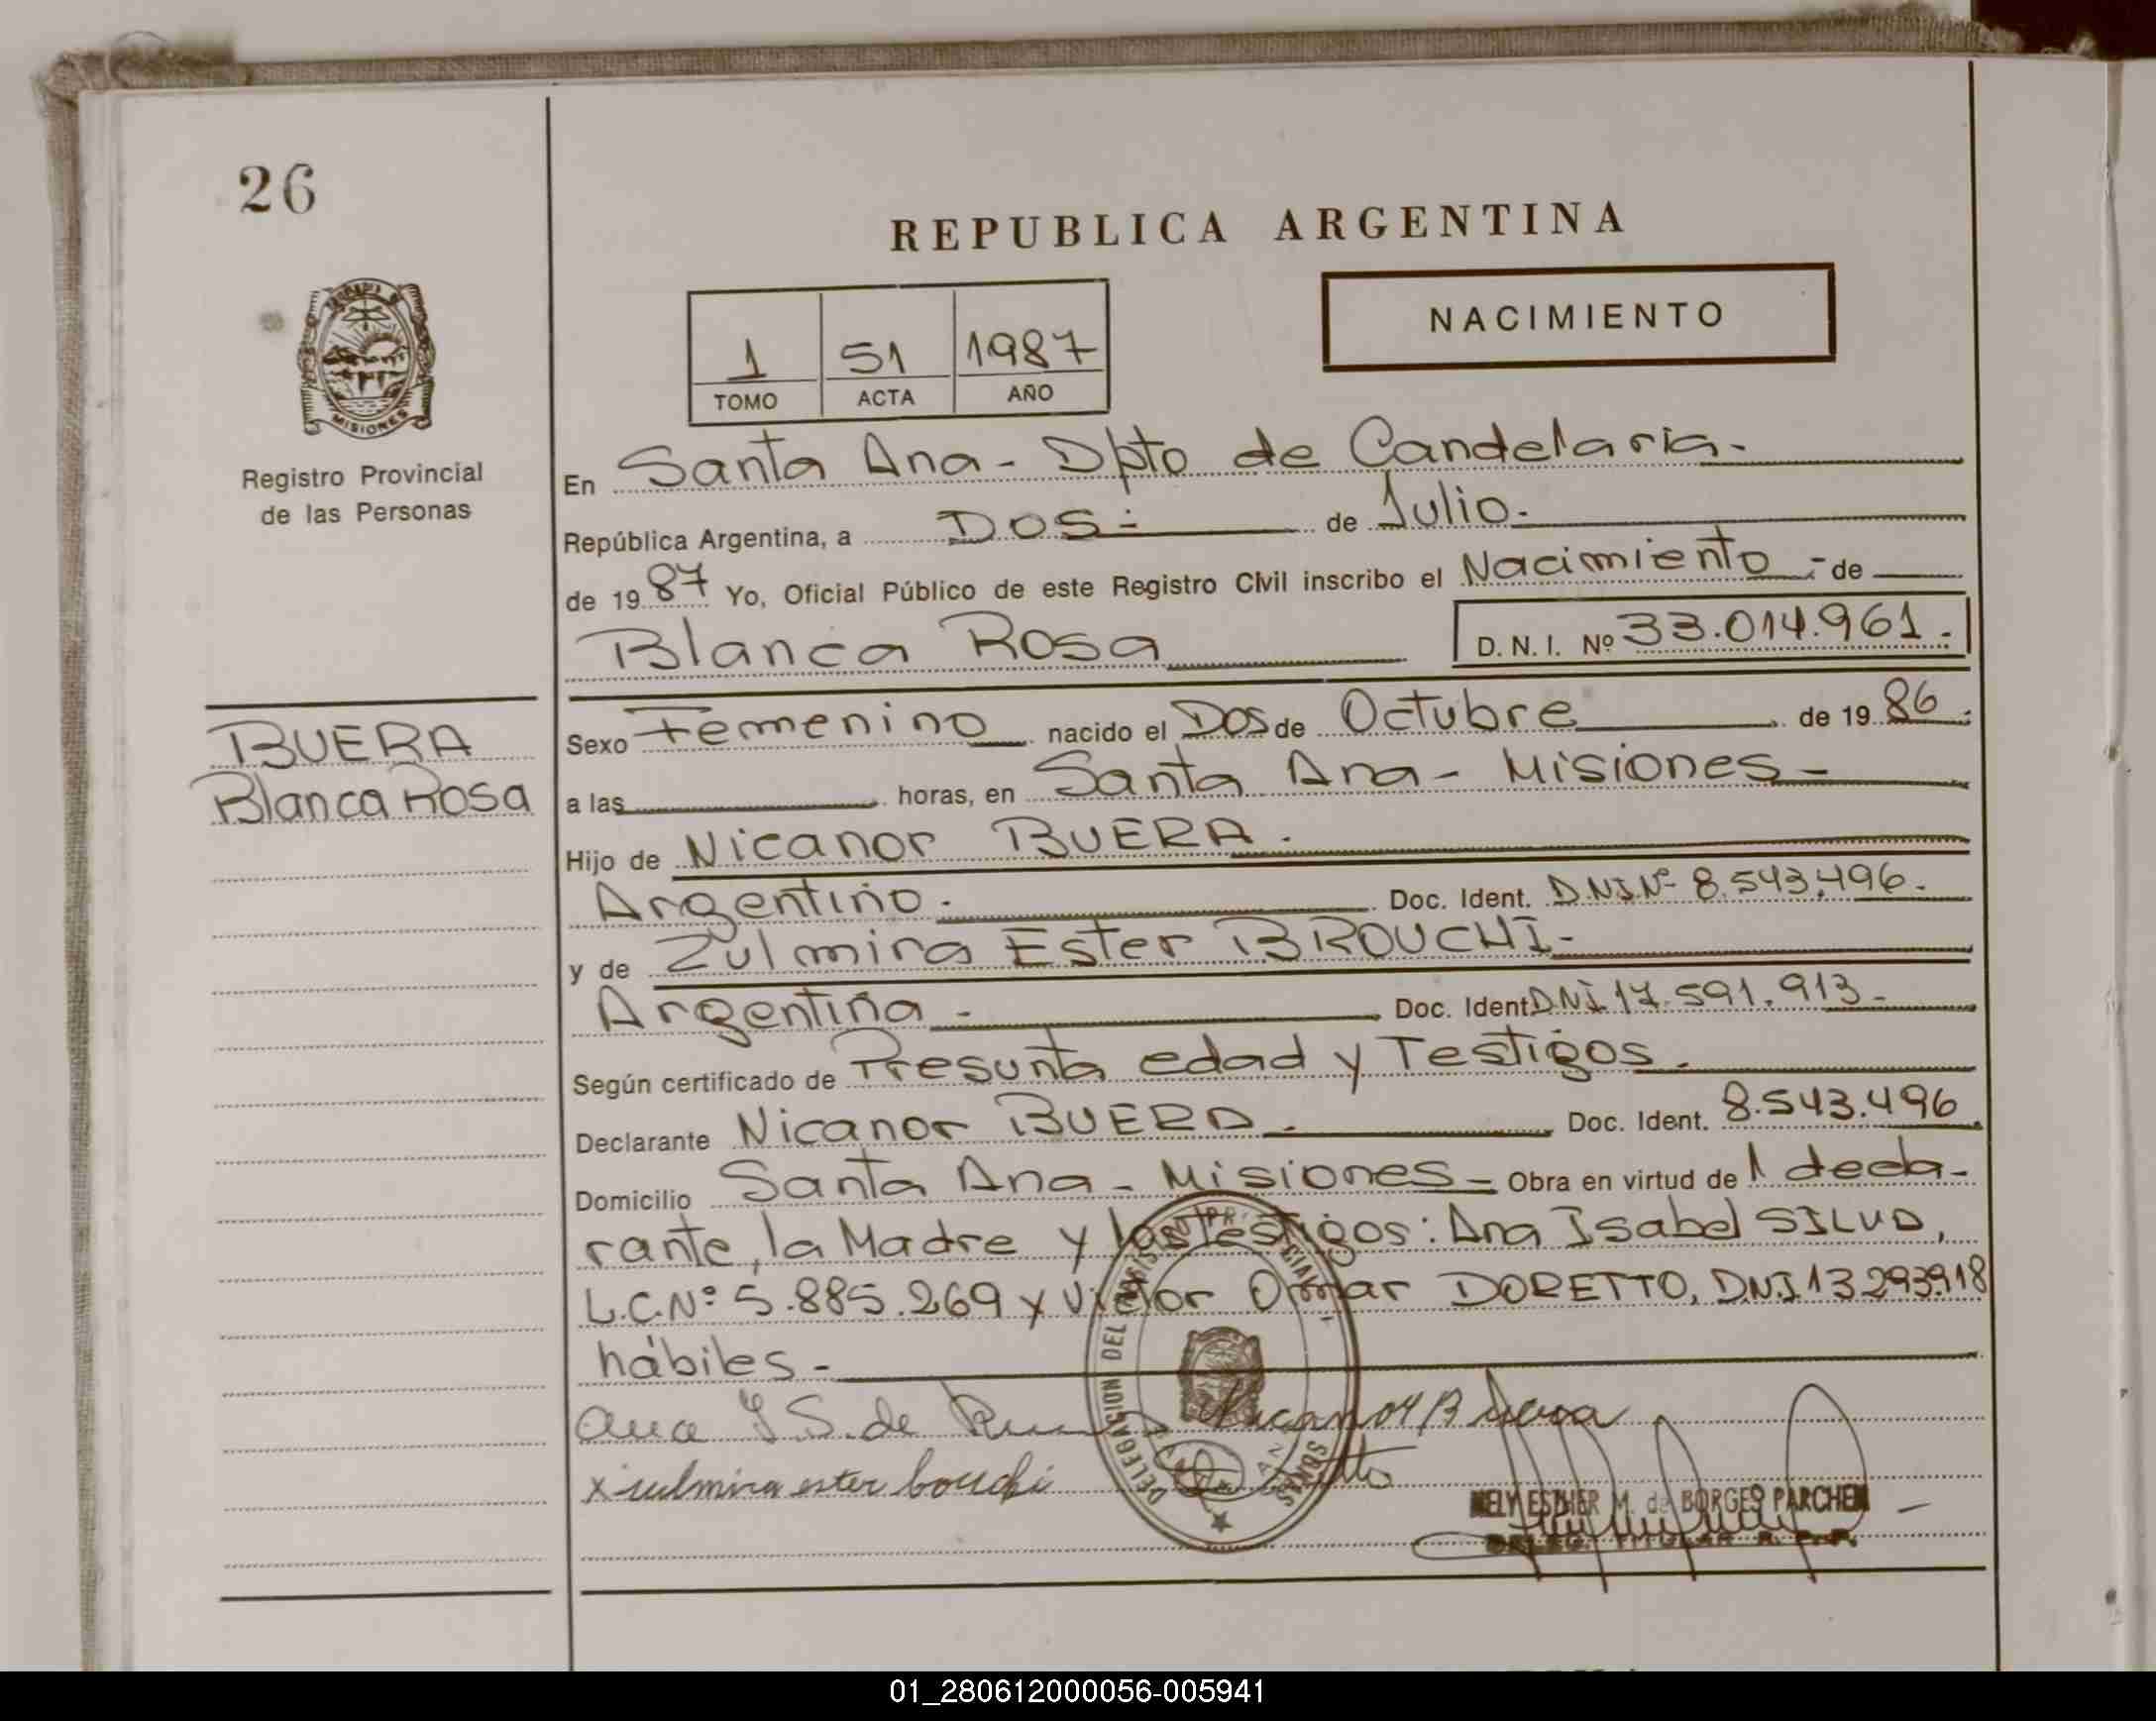 26
REPUBLICA ARGENTINA
NACIMIENTO
1 51 1987
TOMO ACTA AÑO
MISIONES
Registro Provincial
de las Personas
En Santa Ana - Dpto de Candelaria.-
República Argentina, a DOS.- de Julio.-
de 1987 Yo, Oficial Público de este Registro Civil inscribo el Nacimiento.- de
Blanca Rosa D. N. I. Nº 33.014.961.-
BUERA
Blanca Rosa
Sexo Femenino nacido el Dos de Octubre de 1986.
a las horas, en Santa Ana - Misiones -
Hijo de Nicanor BUERA.
Argentino.- Doc. Ident. D.N.I.Nº 8.543.496.-
y de Zulmira Ester BROUCHI.-
Argentina.- Doc. Ident. DNI 17.591.913.-
Según certificado de Presunta edad y Testigos.-
Declarante Nicanor BUERA.- Doc. Ident. 8.543.496
Domicilio Santa Ana - Misiones.- Obra en virtud de l decla-
rante, la Madre y los testigos: Ana Isabel SILVA,
L.C.Nº 5.885.269 y Victor Omar DORETTO, D.N.I 13.293.918
hábiles.-
Ana I. S. de Nicanor B
x sulmira ester bouchi
DELEGACION DEL
NELY ESTHER M. de BORGES PARCHEN
DELEG. TITULAR R. P. P.
01_280612000056-005941